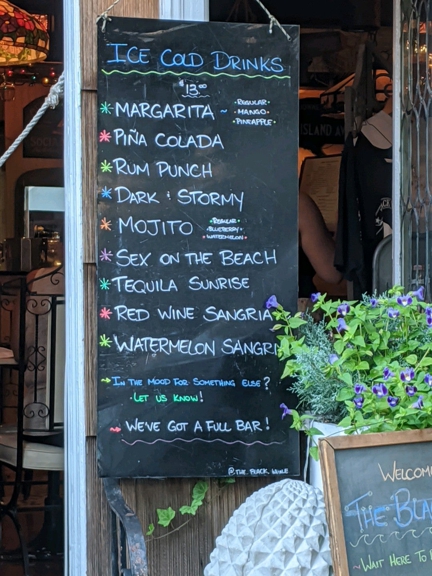 ICE COLD DRINKS
$13.00
MARGARITA ~ •REGULAR• •MANGO• •PINEAPPLE•
PIÑA COLADA
RUM PUNCH
DARK & STORMY
MOJITO •REGULAR• •BLUEBERRY• •WATERMELON•
SEX ON THE BEACH
TEQUILA SUNRISE
RED WINE SANGRIA
WATERMELON SANGRI
IN THE MOOD FOR SOMETHING ELSE?
•LET US KNOW!
WE'VE GOT A FULL BAR!
@THE.BLACK.WHALE
WELCOM
THE BLA
~WAIT HERE TO
ISLAND